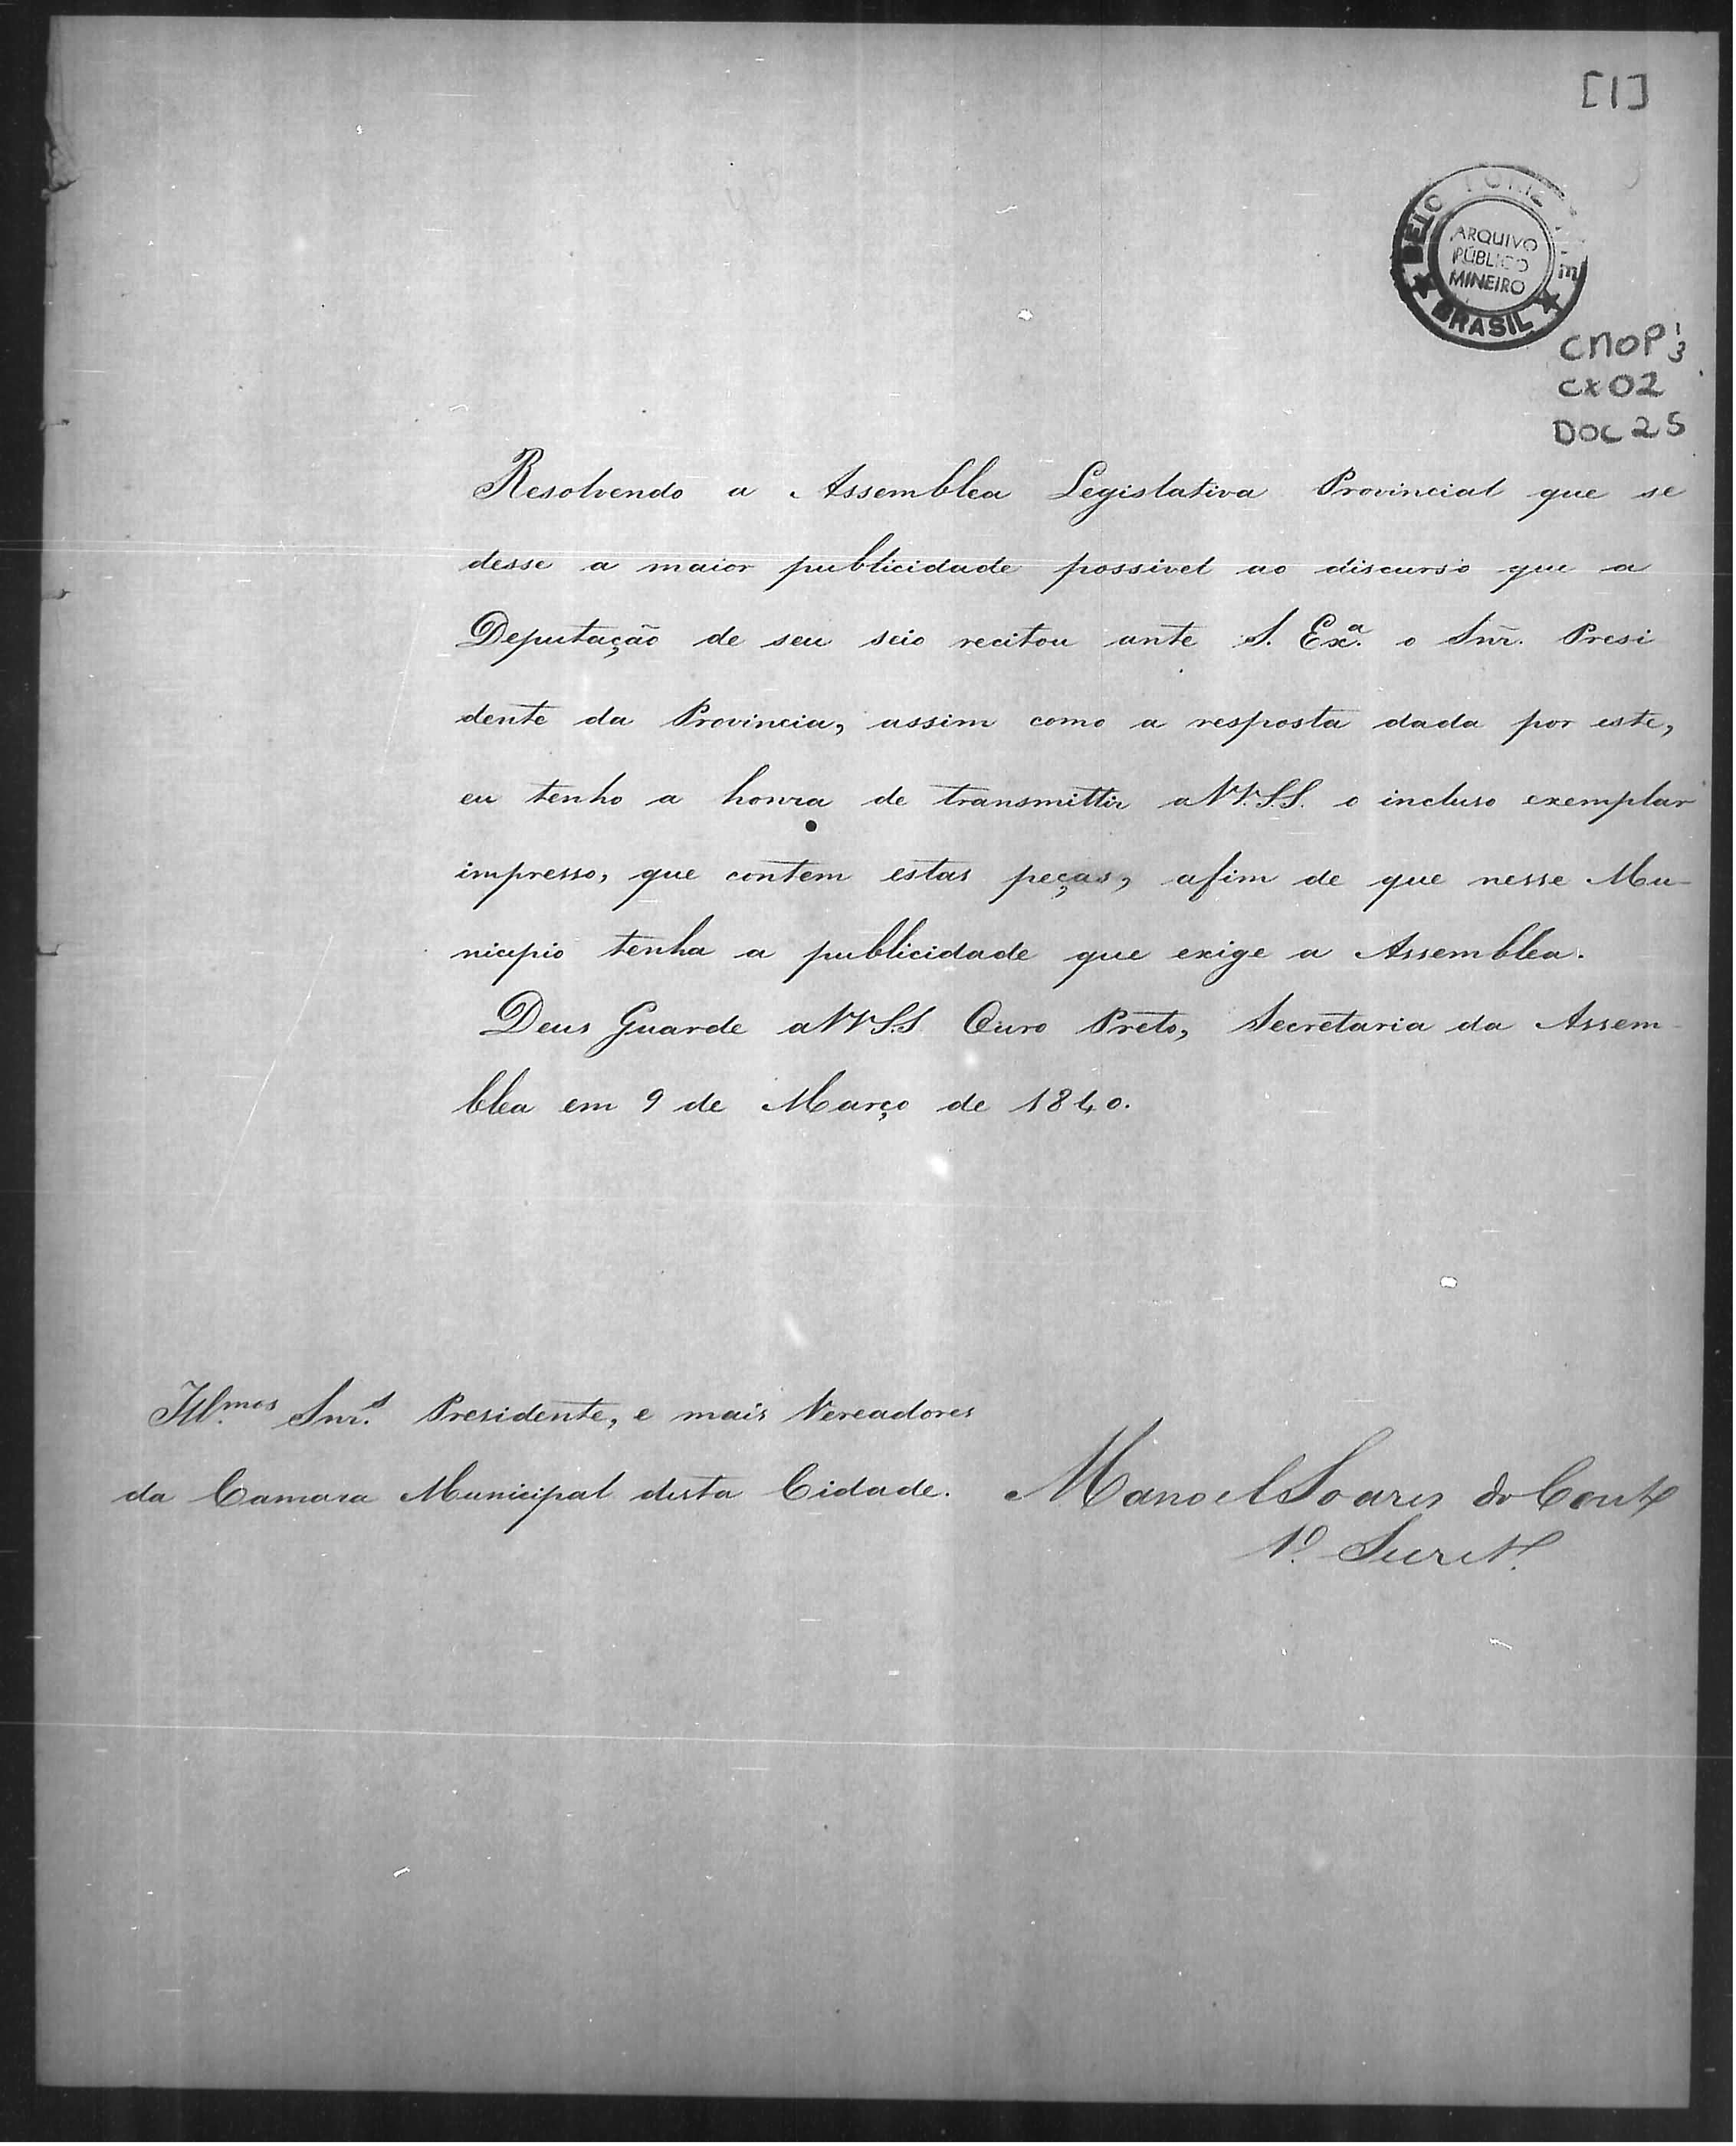 [1]
BELO HORIZONTE
ARQUIVO
PÚBLICO
MINEIRO
★ BRASIL ★
CMOP 1/3
CX 02
DOC 25
Resolvendo a Assemblea Legislativa Provincial que se
desse a maior publicidade possivel ao discurso que a
Deputação de seu seio recitou ante S. Exª. o Snr. Presi
dente da Provincia, assim como a resposta dada por este,
eu tenho a honra de transmittir a VV. S.S. o incluso exemplar
impresso, que contem estas peças, afim de que nesse Mu-
nicipio tenha a publicidade que exige a Assemblea.
Deus Guarde a VV S.S Ouro Preto, Secretaria da Assem-
blea em 9 de Março de 1840.
Ill.mos Snr.s Presidente, e mais Vereadores
da Camara Municipal desta Cidade.
Manoel Soares do Couto
1º Secretº.